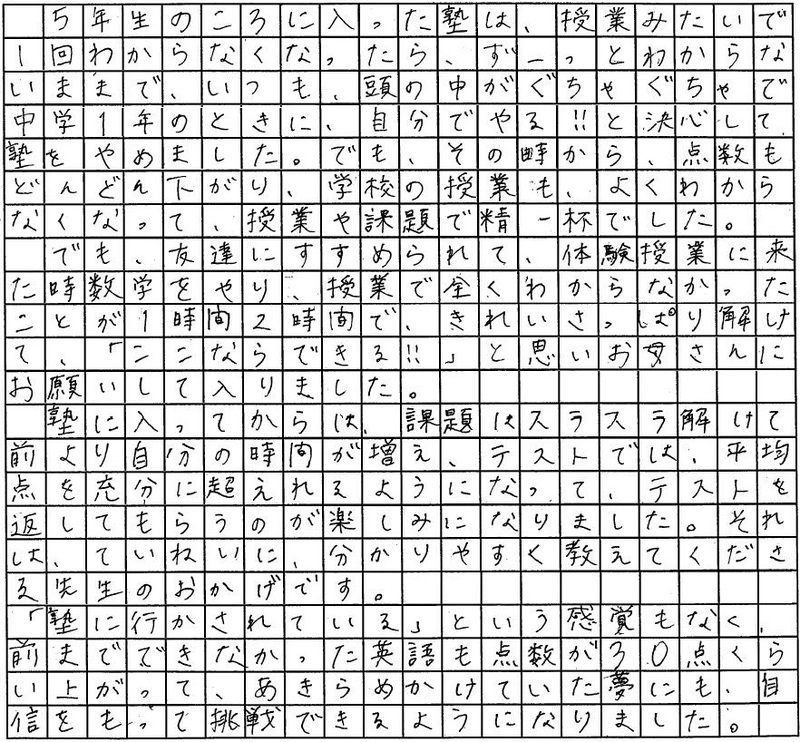 5年生のころに入った塾は、授業みたいで
1回わからなくなったら、ずーっとわからな
いままで、いつも、頭の中がぐちゃぐちゃで
中学1年のときに、自分でやる!!と決心して
塾をやめました。でも、その時から、点数も
どんどん下がり、学校の授業も、よくわから
なくなって、授業や課題で精一杯でした。
　でも、友達にすすめられて、体験授業に来
た時数学をやり、授業で全くわからなかった
ことが1時間2時間で、きれいさっぱり解け
て、「ここならできる!!」と思いお母さんに
お願いして入りました。
　塾に入ってからは、課題はスラスラ解けて
前より自分の時間が増え、テストでは、平均
点を充分に超えれるようになって、テストを
返してもらうのが楽しみになりました。それ
は、ていねいに、分かりやすく教えてくださ
る先生のおかげです。
「塾に行かされている」という感覚もなく、
前までできなかった英語も点数が30点くら
い上がって、あきらめかけていた夢にも、自
信をもって挑戦できるようになりました。